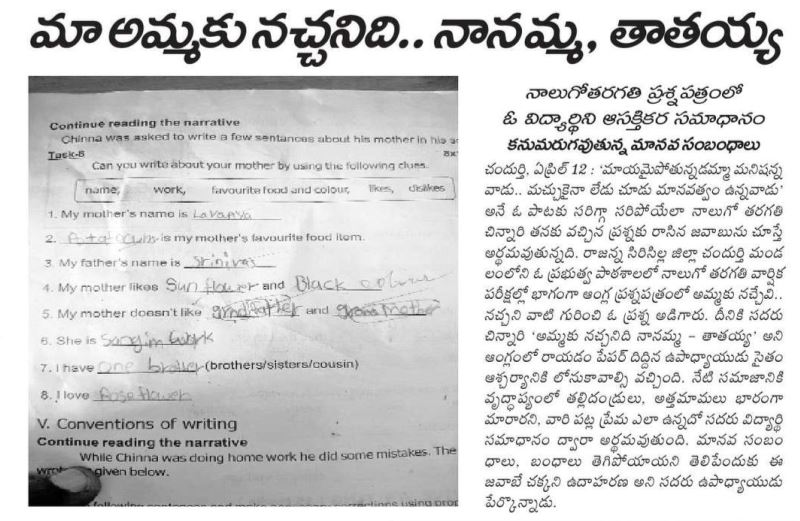 మా అమ్మకు నచ్చనిది.. నానమ్మ, తాతయ్య
Continue reading the narrative
Chinna was asked to write a few sentances about his mother in his
Task-8
Can you write about your mother by using the following clues.
name, work, favourite food and colour, likes, dislikes
1. My mother's name is Lavanya
2. is my mother's favourite food item.
3. My father's name is Srinivas
4. My mother likes Sun flower and Black colour
5. My mother doesn't like grndfatter and grand mother
6. She is work
7. I have one (brothers/sisters/cousin)
8. I love Rose flower
V. Conventions of writing
Continue reading the narrative
While Chinna was doing home work he did some mistakes. The
given below.
నాలుగోతరగతి ప్రశ్నపత్రంలో
ఓ విద్యార్థిని ఆసక్తికర సమాధానం
కనుమరుగవుతున్న మానవ సంబంధాలు
చందుర్తి, ఏప్రిల్ 12 : 'మాయమైపోతున్నడమ్మా మనిషన్న
వాడు.. మచ్చుకైనా లేడు చూడు మానవత్వం ఉన్నవాడు'
అనే ఓ పాటకు సరిగ్గా సరిపోయేలా నాలుగో తరగతి
చిన్నారి తనకు వచ్చిన ప్రశ్నకు రాసిన జవాబును చూస్తే
అర్థమవుతున్నది. రాజన్న సిరిసిల్ల జిల్లా చందుర్తి మండ
లంలోని ఓ ప్రభుత్వ పాఠశాలలో నాలుగో తరగతి వార్షిక
పరీక్షల్లో భాగంగా ఆంగ్ల ప్రశ్నపత్రంలో అమ్మకు నచ్చేవి..
నచ్చని వాటి గురించి ఓ ప్రశ్న అడిగారు. దీనికి సదరు
చిన్నారి 'అమ్మకు నచ్చనిది నానమ్మ - తాతయ్య' అని
ఆంగ్లంలో రాయడం పేపర్ దిద్దిన ఉపాధ్యాయుడు సైతం
ఆశ్చర్యానికి లోనుకావాల్సి వచ్చింది. నేటి సమాజానికి
వృద్ధాప్యంలో తల్లిదండ్రులు, అత్తమామలు భారంగా
మారారని, వారి పట్ల ప్రేమ ఎలా ఉన్నదో సదరు విద్యార్థి
సమాధానం ద్వారా అర్థమవుతుంది. మానవ సంబం
ధాలు, బంధాలు తెగిపోయాయని తెలిపేందుకు ఈ
జవాబే చక్కని ఉదాహరణ అని సదరు ఉపాధ్యాయుడు
పేర్కొన్నాడు.